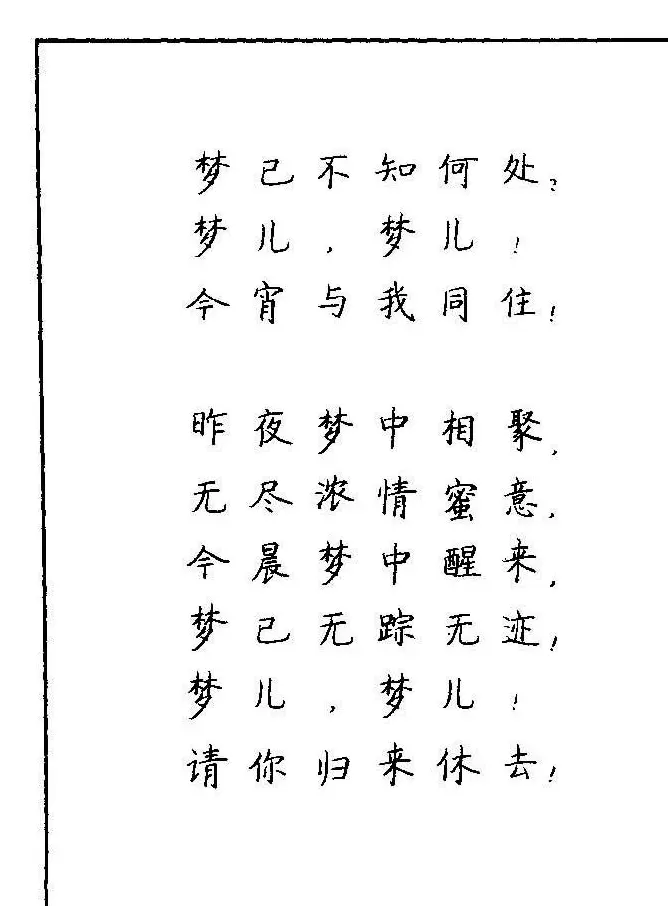 梦已不知何处?
梦儿,梦儿!
今宵与我同住!
昨夜梦中相聚,
无尽浓情蜜意,
今晨梦中醒来,
梦已无踪无迹!
梦儿,梦儿!
请你归来休去!